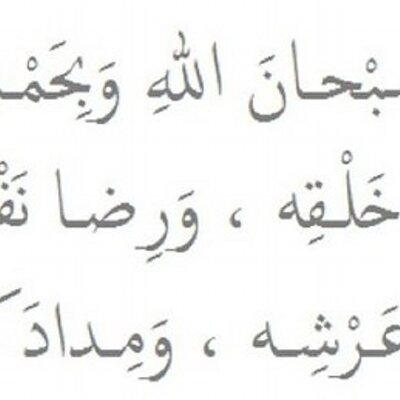 ـبْحانَ اللهِ وَبِحَمْـ
خَلْقِه ، وَرِضا نَفْـ
عَرْشِه ، وَمِدادَ كـ